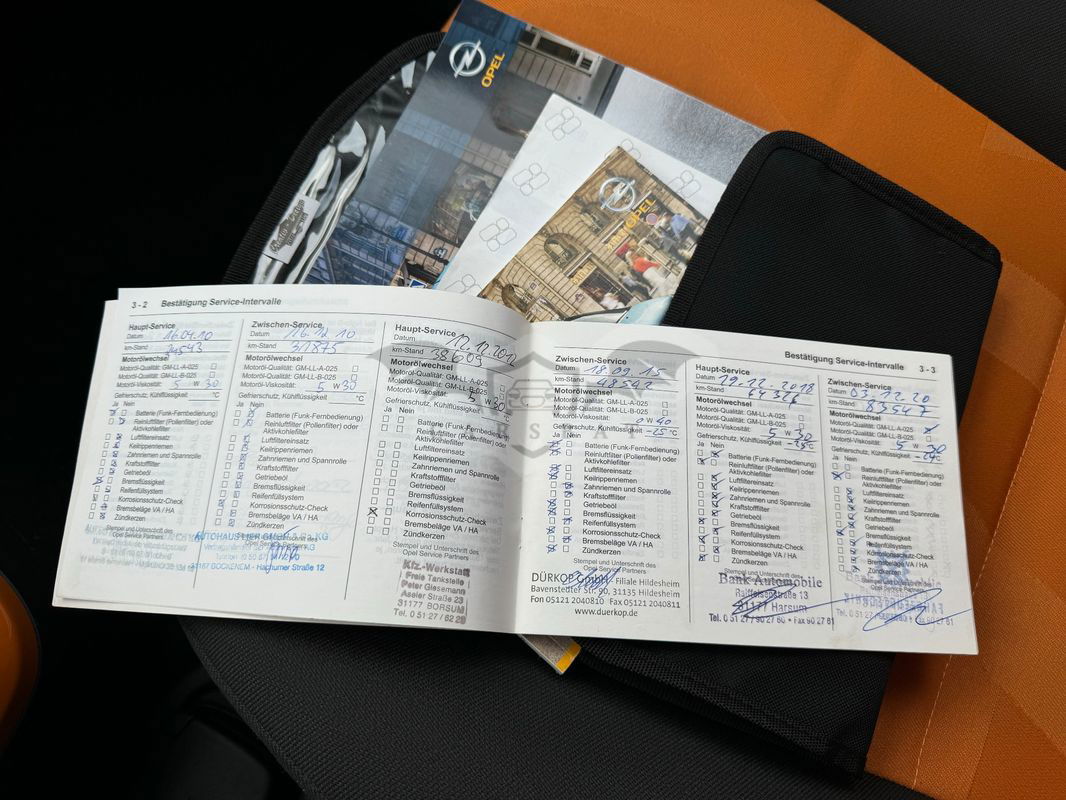 OPEL
OPEL
3 - 2 Bestätigung Service-Intervalle
Haupt-Service
Datum 16.04.10
km-Stand
Motorölwechsel
Motoröl-Qualität: GM-LL-A-025
Motoröl-Qualität: GM-LL-B-025
Motoröl-Viskosität: 5 W 30
Gefrierschutz, Kühlflüssigkeit °C
Ja Nein
Batterie (Funk-Fernbedienung)
Reinluftfilter (Pollenfilter) oder
Aktivkohlefilter
Luftfiltereinsatz
Keilrippenriemen
Zahnriemen und Spannrolle
Kraftstofffilter
Getriebeöl
Bremsflüssigkeit
Reifenfüllsystem
Korrosionsschutz-Check
Bremsbeläge VA / HA
Zündkerzen
Stempel und Unterschrift des
Opel Service Partners
Zwischen-Service
Datum 16.12.10
km-Stand 31875
Motorölwechsel
Motoröl-Qualität: GM-LL-A-025
Motoröl-Qualität: GM-LL-B-025
Motoröl-Viskosität: 5 W 30
Gefrierschutz, Kühlflüssigkeit °C
Ja Nein
Batterie (Funk-Fernbedienung)
Reinluftfilter (Pollenfilter) oder
Aktivkohlefilter
Luftfiltereinsatz
Keilrippenriemen
Zahnriemen und Spannrolle
Kraftstofffilter
Getriebeöl
Bremsflüssigkeit
Reifenfüllsystem
Korrosionsschutz-Check
Bremsbeläge VA / HA
Zündkerzen
31167 BOCKENEM - Hachumer Straße 12
Haupt-Service
Datum 12.12.2012
km-Stand 38609
Motorölwechsel
Motoröl-Qualität: GM-LL-A-025
Motoröl-Qualität: GM-LL-B-025
Motoröl-Viskosität: 5 W 30
Gefrierschutz, Kühlflüssigkeit °C
Ja Nein
Batterie (Funk-Fernbedienung)
Reinluftfilter (Pollenfilter) oder
Aktivkohlefilter
Luftfiltereinsatz
Keilrippenriemen
Zahnriemen und Spannrolle
Kraftstofffilter
Getriebeöl
Bremsflüssigkeit
Reifenfüllsystem
Korrosionsschutz-Check
Bremsbeläge VA / HA
Zündkerzen
Stempel und Unterschrift des
Opel Service Partners
Kfz.-Werkstatt
Freie Tankstelle
Peter Giesemann
Aseler Straße 23
31177 BORSUM
Tel. 0 51 27 / 62 29
Bestätigung Service-Intervalle 3 - 3
Zwischen-Service
Datum 18.09.15
km-Stand 48542
Motorölwechsel
Motoröl-Qualität: GM-LL-A-025
Motoröl-Qualität: GM-LL-B-025
Motoröl-Viskosität: 0 W 40
Gefrierschutz, Kühlflüssigkeit -25 °C
Ja Nein
Batterie (Funk-Fernbedienung)
Reinluftfilter (Pollenfilter) oder
Aktivkohlefilter
Luftfiltereinsatz
Keilrippenriemen
Zahnriemen und Spannrolle
Kraftstofffilter
Getriebeöl
Bremsflüssigkeit
Reifenfüllsystem
Korrosionsschutz-Check
Bremsbeläge VA / HA
Zündkerzen
Stempel und Unterschrift des
Opel Service Partners
DÜRKOP GmbH Filiale Hildesheim
Bavenstedter Str. 90, 31135 Hildesheim
Fon 05121 2040810 Fax 05121 2040811
www.duerkop.de
Haupt-Service
Datum 19.12.2018
km-Stand 64326
Motorölwechsel
Motoröl-Qualität: GM-LL-A-025
Motoröl-Qualität: GM-LL-B-025
Motoröl-Viskosität: 5 W 30
Gefrierschutz, Kühlflüssigkeit °C
Ja Nein
Batterie (Funk-Fernbedienung)
Reinluftfilter (Pollenfilter) oder
Aktivkohlefilter
Luftfiltereinsatz
Keilrippenriemen
Zahnriemen und Spannrolle
Kraftstofffilter
Getriebeöl
Bremsflüssigkeit
Reifenfüllsystem
Korrosionsschutz-Check
Bremsbeläge VA / HA
Zündkerzen
Stempel und Unterschrift des
Opel Service Partners
Bank Automobile
Raiffeisenstraße 13
31177 Harsum
Tel. 0 51 27 / 90 27 80 • Fax 90 27 81
Zwischen-Service
Datum 03.12.20
km-Stand 83547
Motorölwechsel
Motoröl-Qualität: GM-LL-A-025
Motoröl-Qualität: GM-LL-B-025
Motoröl-Viskosität: 5 W 30
Gefrierschutz, Kühlflüssigkeit °C
Ja Nein
Batterie (Funk-Fernbedienung)
Reinluftfilter (Pollenfilter) oder
Aktivkohlefilter
Luftfiltereinsatz
Keilrippenriemen
Zahnriemen und Spannrolle
Kraftstofffilter
Getriebeöl
Bremsflüssigkeit
Reifenfüllsystem
Korrosionsschutz-Check
Bremsbeläge VA / HA
Zündkerzen